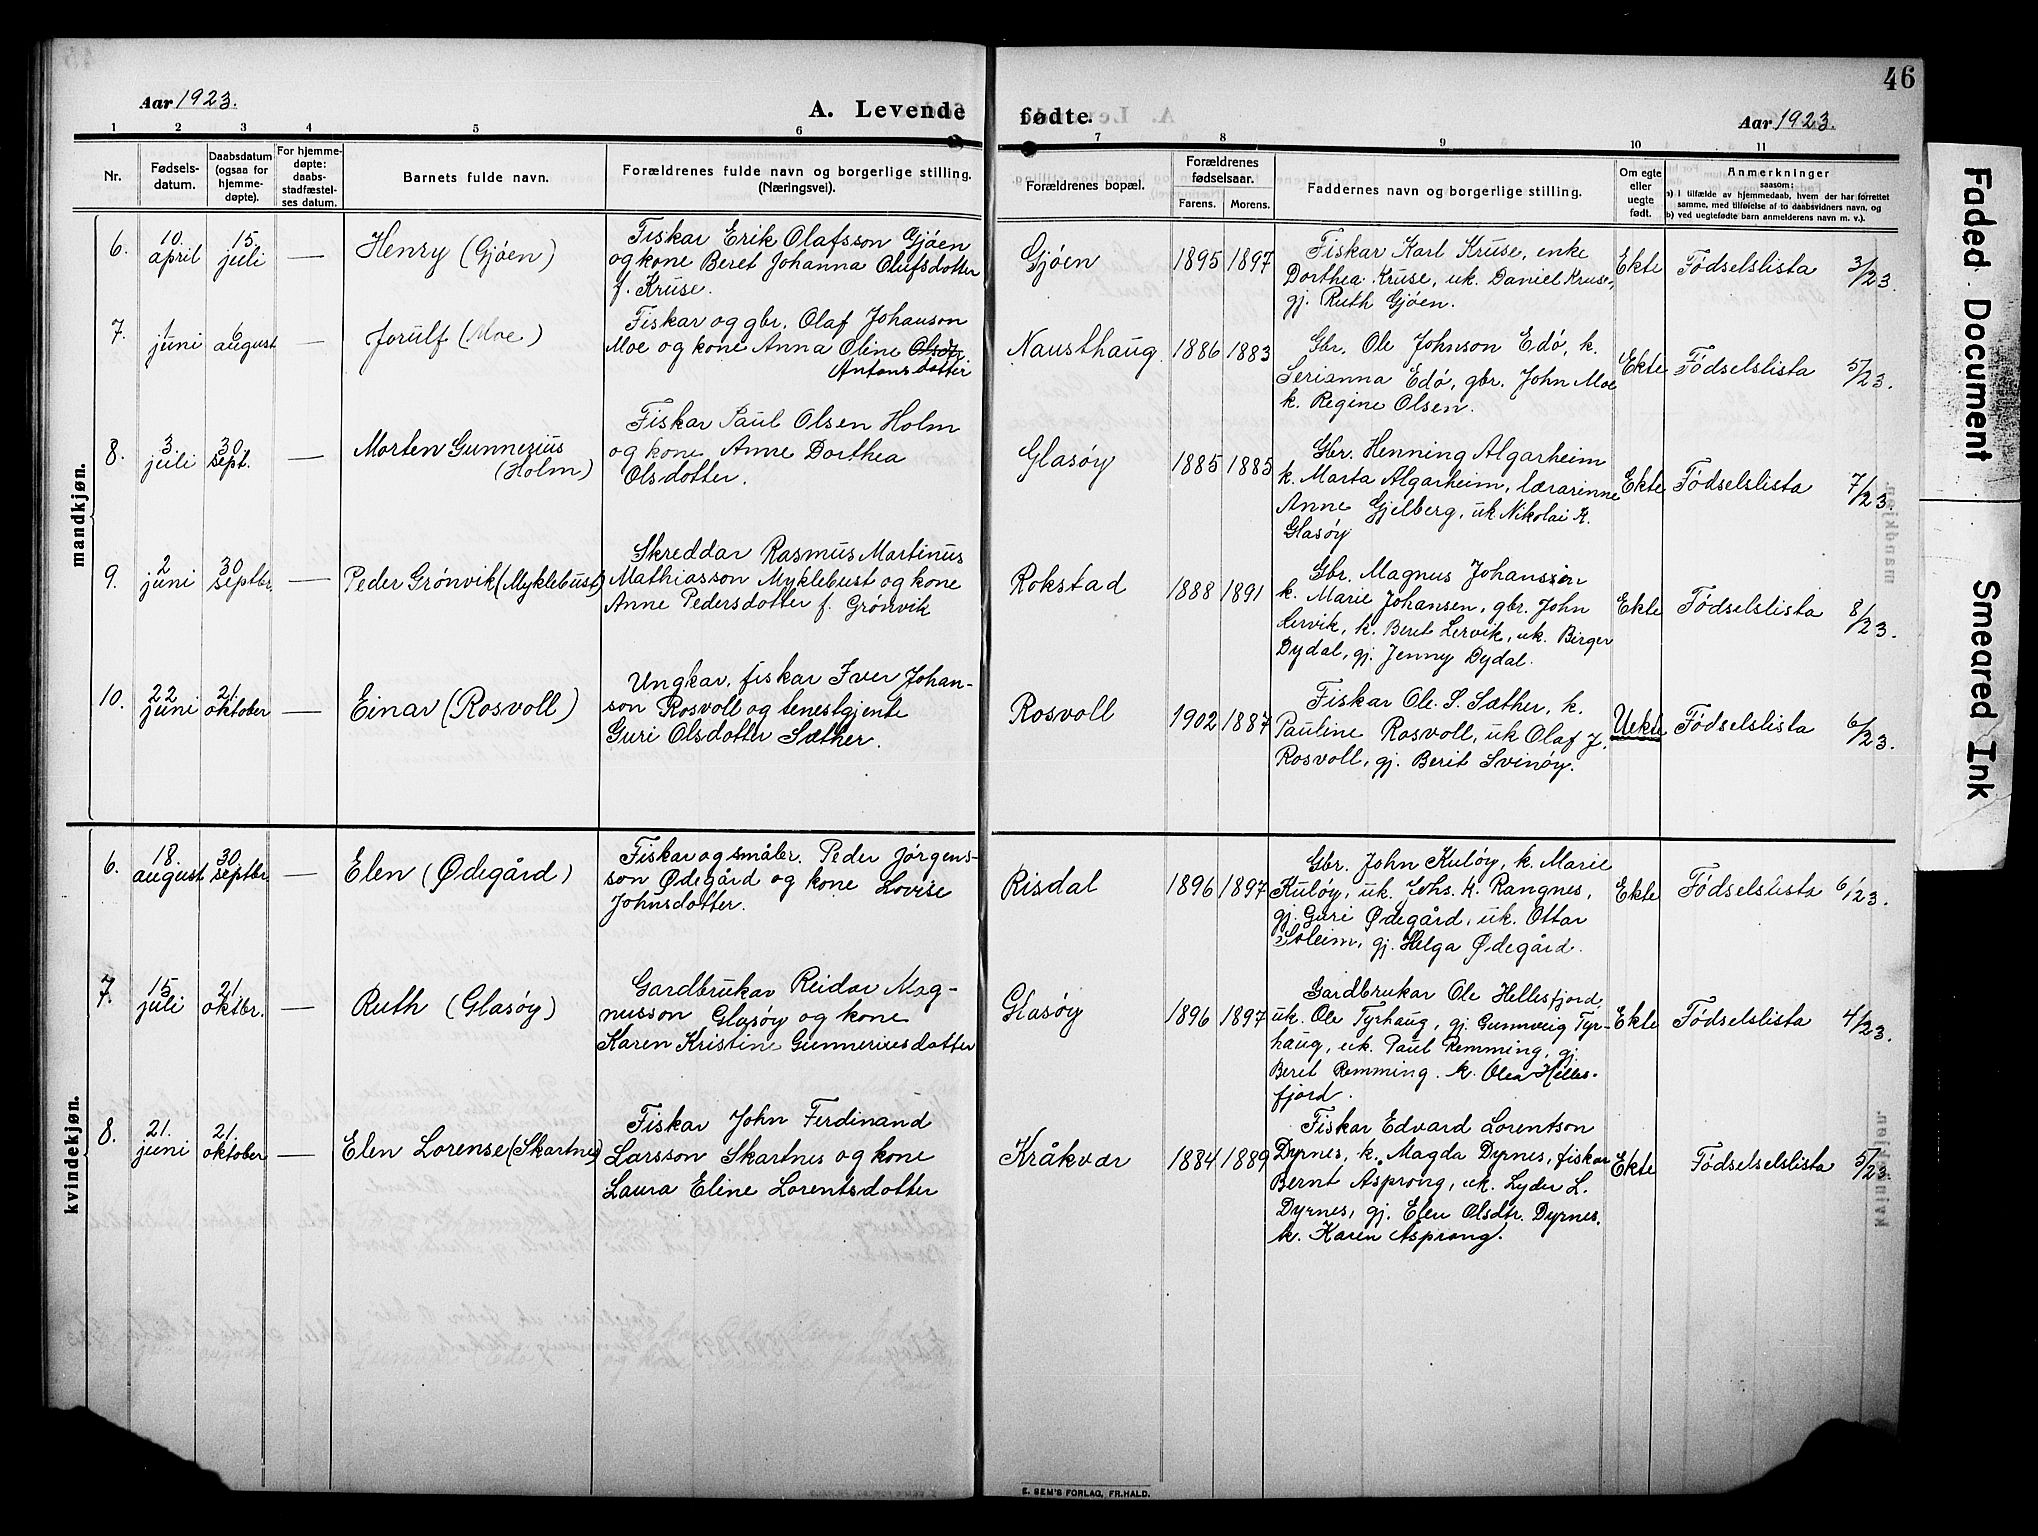 46
Aar 1923.
A. Levende fødte.
Aar 1923.
1 2 3 4 5 6 7 8 9 10 11
Nr.
Fødsels-
datum.
Daabsdatum
(ogsaa for
hjemme-
døpte).
For hjemme-
døpte:
daabs-
stadfæstel-
ses datum.
Barnets fulde navn.
Forældrenes fulde navn og borgerlige stilling.
(Næringsvei).
Forældrenes bopæl.
Forældrenes
fødselsaar.
Farens. Morens.
Faddernes navn og borgerlige stilling.
Om egte
eller
uegte
født.
Anmerkninger
saasom:
a) I tilfælde av hjemmedaab, hvem der har forrettet
samme, med tilføielse av to daabsvidners navn, og
b) ved uegtefødte barn anmelderens navn m. v.).
mandkjøn.
6.
10.
april
15.
juli
—
Henry (Gjøen)
Fiskar Erik Olafsson Gjøen
og kone Beret Johanna Olufsdotter
f. Kruse.
Gjøen
1895 1897
Fiskar Karl Kruse, enke
Dorthea Kruse, uk. Daniel Kruse,
gj. Ruth Gjøen.
Ekte
Fødselslista 3/23.
7.
1
juni
6
august
—
Jorulf (Moe)
Fiskar og gbr. Olaf Johanson
Moe og kone Anna Oline Olsdtr.
Antonsdotter
Nausthaug
1886 1883
Gbr. Ole Johnson Edø, k.
Serianna Edø, gbr. John Moe
k. Regine Olsen.
Ekte
Fødselslista 5/23.
8.
3
juli
30
sept.
—
Morten Gunnerius
(Holm)
Fiskar Paul Olsen Holm
og kone Anne Dorthea
Olsdotter.
Glasøy
1885 1885
Gbr. Henning Algarheim
k. Marta Algarheim, lærarinne
Anne Gjelberg, uk Nikolai K.
Glasøy
Ekte
Fødselslista 7/23.
9.
2
juni
30
septbr.
—
Peder Grønvik (Myklebust)
Skreddar Rasmus Martinus
Mathiasson Myklebust og kone
Anne Pedersdotter f. Grønvik
Rokstad
1888 1891
Gbr. Magnus Johanssen
k. Marie Johansen, gbr. John
Lervik, k. Beret Lervik, uk. Birger
Dydal, gj. Jenny Dydal.
Ekte
Fødselslista 8/23.
10.
22
juni
21.
oktober
—
Einar (Rosvoll)
Ungkar, fiskar Iver Johan-
son Rosvoll og tenestgjente
Guri Olsdotter Sæther.
Rosvoll
1902 1887
Fiskar Ole S. Sæther, k.
Pauline Rosvoll, uk Olaf J.
Rosvoll, gj. Berit Svinøy.
Uekte
Fødselslista 6/23.
kvindekjøn.
6.
18.
august
30
septbr.
—
Elen (Ødegård)
Fiskar og småbr. Peder Jørgens-
son Ødegård og kone Lovise
Johnsdotter.
Risdal
1896 1897
Gbr. John Kuløy, k. Marie
Kuløy, uk. Johs. K. Rangnes,
gj. Guri Ødegård, uk. Ottar
Soleim, gj. Helga Ødegård.
Ekte
Fødselslista 6/23.
7.
15
juli
21.
oktbr.
—
Ruth (Glasøy)
Gardbrukar Reidar Mag-
nusson Glasøy og kone
Karen Kristine Gunneriusdotter
Glasøy
1896 1897
Gardbrukar Ole Hellesfjord
uk. Ole Tyrhaug, gj. Gunnveig Tyr-
haug, uk. Paul Remming, gj.
Berit Remming. k. Olea Helles-
fjord.
Ekte
Fødselslista 4/23.
8.
21.
juni
21.
oktober
—
Elen Lorense (Skartnes)
Fiskar John Ferdinand
Larsson Skartnes og kone
Laura Eline Lorentsdotter
Kråkvær
1884 1889
Fiskar Edvard Lorentson
Dyrnes, k. Magda Dyrnes, fiskar
Bernt Asprong, uk. Lyder L.
Dyrnes, gj. Elen Olsdtr. Dyrnes.
k. Karen Asprong.
Ekte
Fødselselslista 5/23.
E. SEM'S FORLAG, FR.HALD.
Faded Document
Smeared Ink